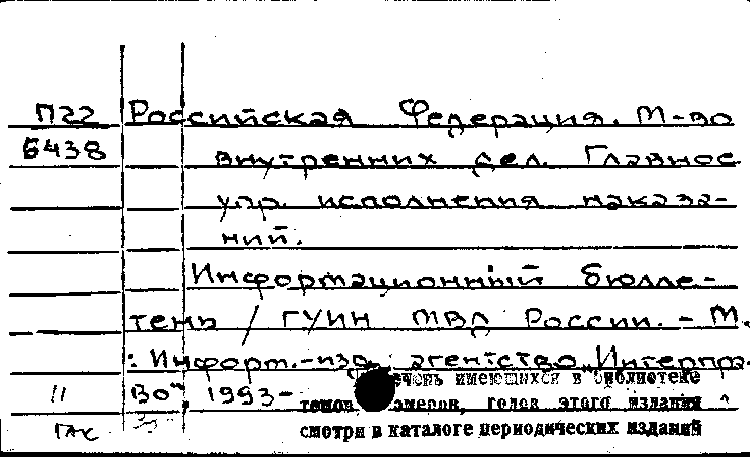 П22 Российская Федерация. М-во
Б438 внутренних дел. Главное
упр. исполнения наказа-
ний.
Информационный бюлле-
тень / ГУИН МВД России. - М.
: Информ.-изд. агентство "Интерпра-
11 во", 1993-
имеющихся в библиотеке
томов, номеров, годов этого издания
ГАК
смотри в каталоге периодических изданий